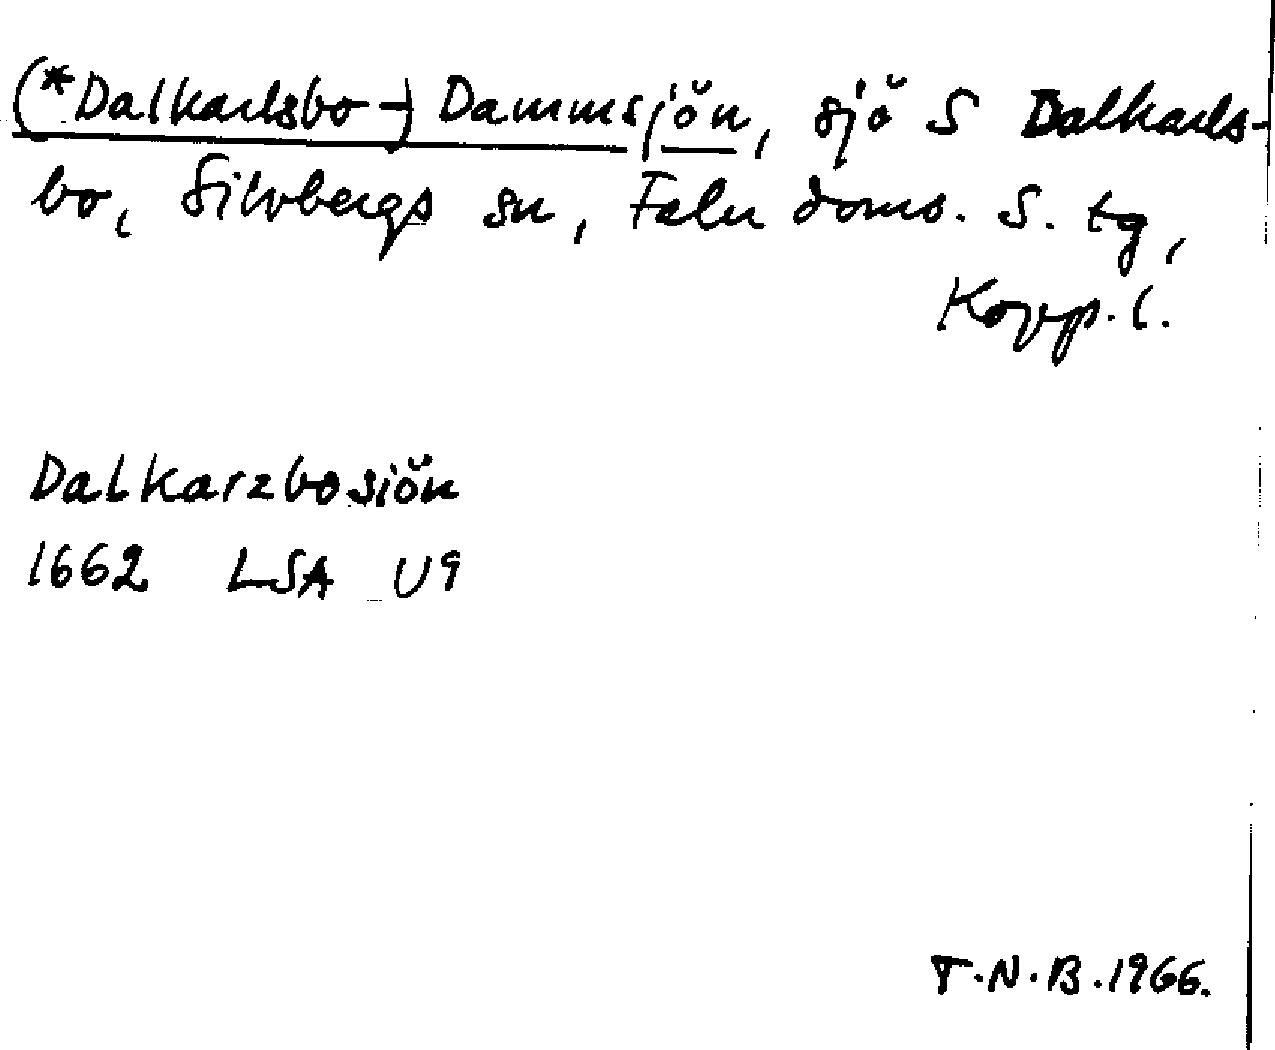 (*Dalkarlsbo-) Dammsjön, sjö S Dalkarls-
bo, Silvbergs sn, Falu doms. S. tg,
Kopp. l.
Dalkarzbosiön
1662 LSA U9
T.N.B. 1966.